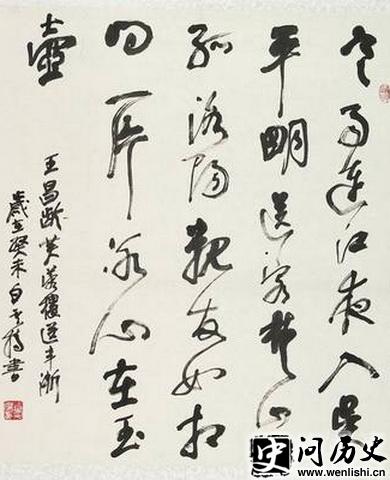 寒雨連江夜入吳
平明送客楚山
孤洛陽親友如相
問一片冰心在玉
壺
王昌齡芙蓉樓送辛漸
歲在癸未白書
史问历史
www.wenlishi.cn